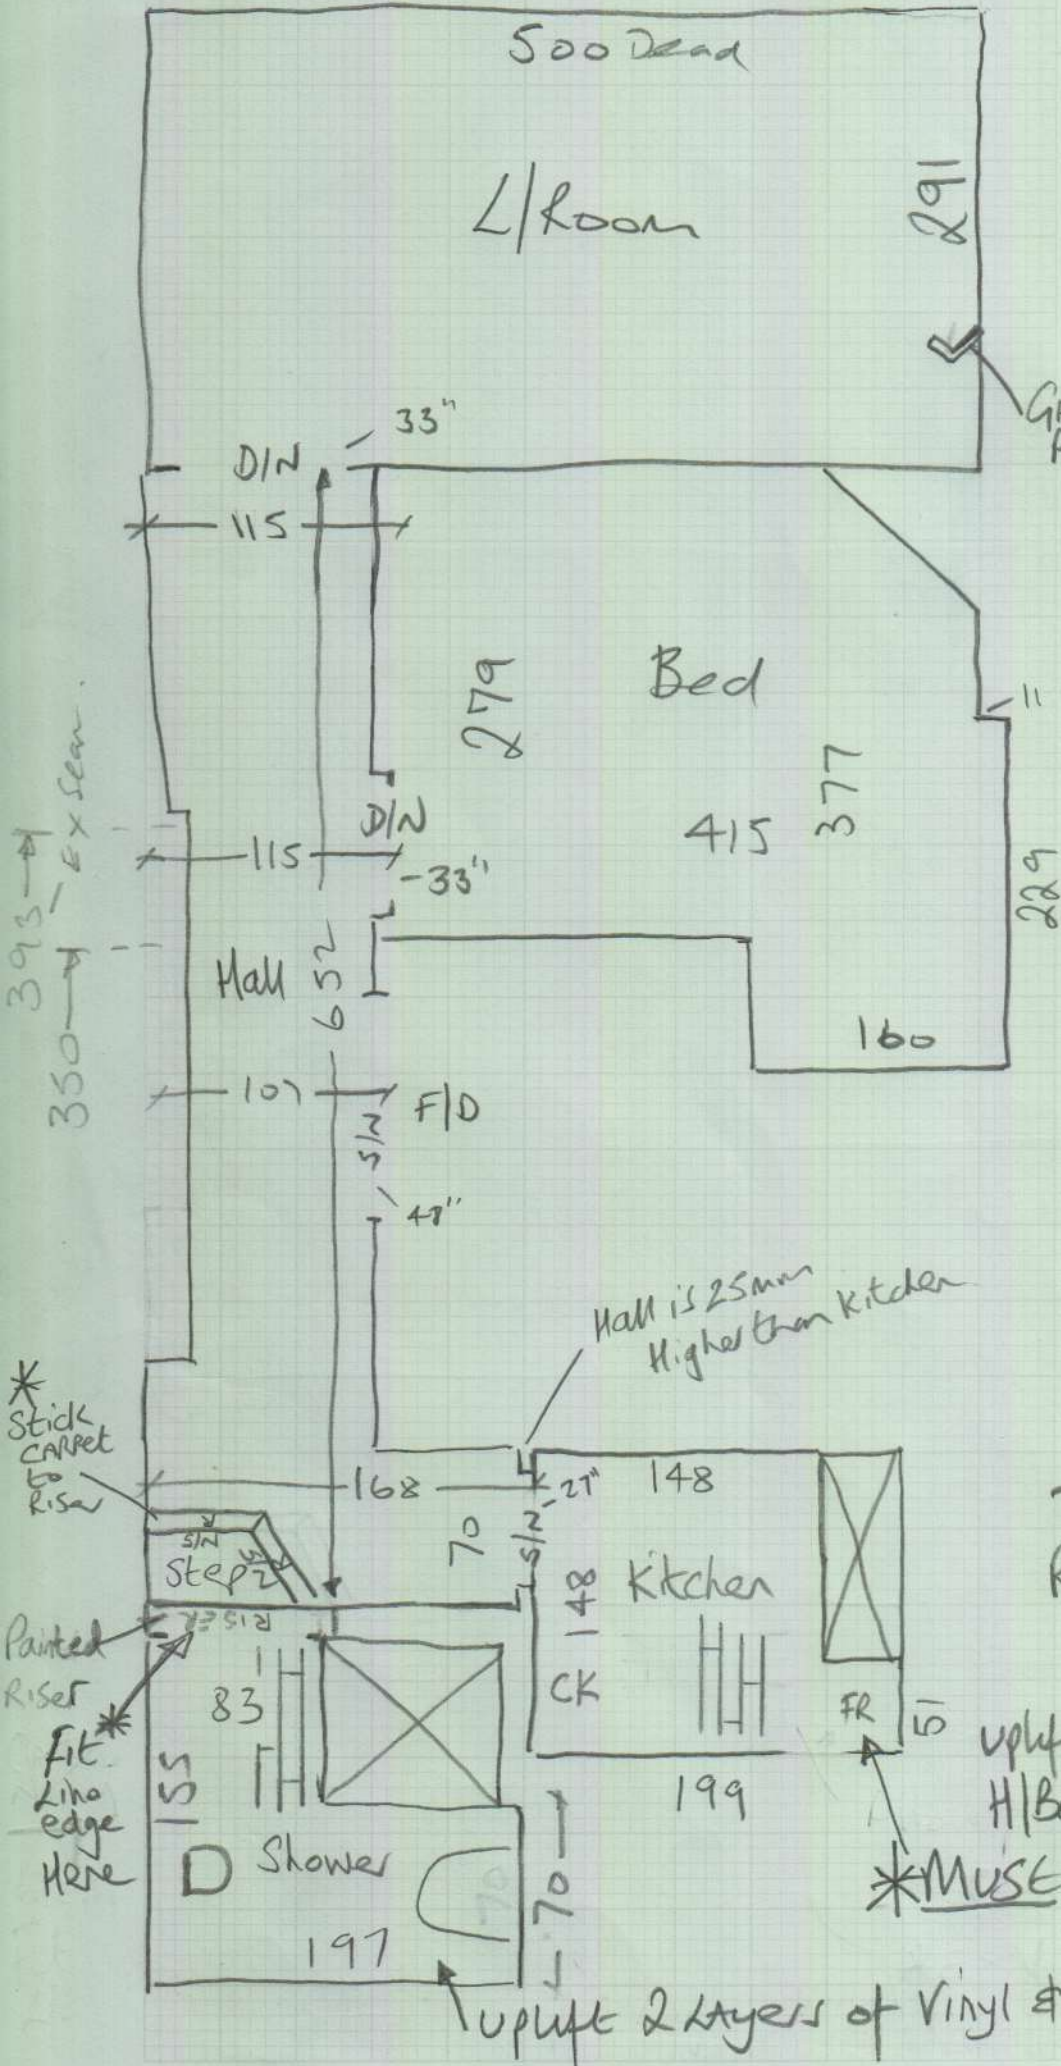 500 Dead
L/Room
291
33"
D/N
115
279
Bed
11
377
D/N
415
115
33"
229
393
Ex Seam.
350
Hall
652
160
107
F/D
S/N
48"
Hall is 25mm
Higher than Kitchen
*
Stick
CARPET
to
Riser
168
27"
148
S/N
70
S/N
S/N
Step
148
Kitchen
RISER
Painted
Riser
*
Fit
Lino
edge
Here
83
CK
FR
51
155
199
uplift
H/B
D Shower
70
* MUST
197
uplift 2 LAyers of Vinyl &